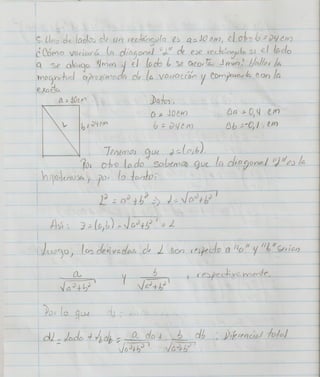 5. Uno de lados de un rectángulo es a = 10 cm, el otro b = 24 cm
¿Cómo variará la diagonal "L" de ese rectángulo si el lado
a se alarga 4mm y el lado b se acorta 1mm? Hallar la
magnitud aproximada de la variación y compararla con la
exacta
a = 10cm
Datos:
a = 10cm
Δa = 0,4 cm
L
b = 24cm
b = 24cm
Δb = -0,1 cm
Tenemos que z=(a,b)
Por otro lado sabemos que la diagonal "L" es la
hipotenusa, por lo tanto:
L² = a² + b² ⇒ L = √a²+b²
Así: z = (a,b) = √a²+b² = L
Luego, las derivadas de L son respecto a "a" y "b" serían
a/√a²+b² y b/√a²+b² , respectivamente.
Por lo que
dL = Lada + Lbdb = a/√a²+b² da + b/√a²+b² db : Diferencial total